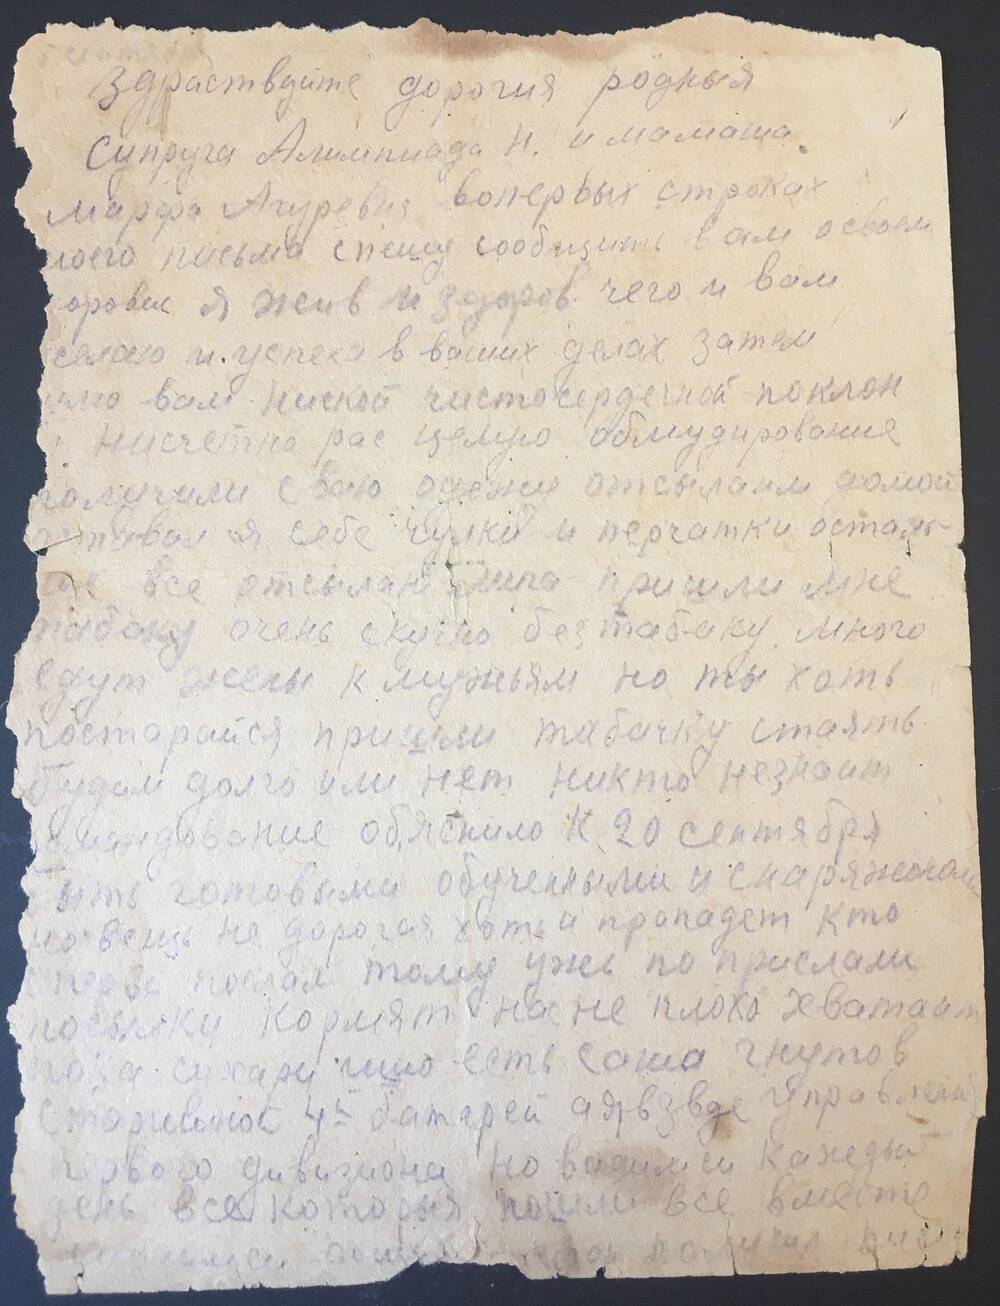 сентября
Здраствуйте дорогия родныя
супруга Алимпиада Н. и мамаша
Марфа Агуревна вопервых строках
моего письма спешу сообщить вам освоем
оровье я жив и здоров чего и вам
желаю и успеха в ваших делах затем
шлю вам ниской чистосердечной поклон
и нисчетно рас целую обмудирование
получили свою одежу отсылаим домой
я себе чулки и перчатки осталь-
ое все отсылаю Липа пришли мне
табаку очень скучно без табаку много
едут жены к мужьям но ты хоть
постарайся пришли табачку стаять
будим долго или нет никто незнаит
командование обяснило к 20 сентября
быть готовыми обученными и снаряженами
но вещь не дорогая хоть и пропадет кто
тому ужь по прислали
посылки кормят нас не плохо хватаит
пока сухари ишо есть Саша Гнутов
старшиной 4й батареи а я взводе управления
первого дивизиона но видимси каждый
день все которыя пошли все вместе
получил